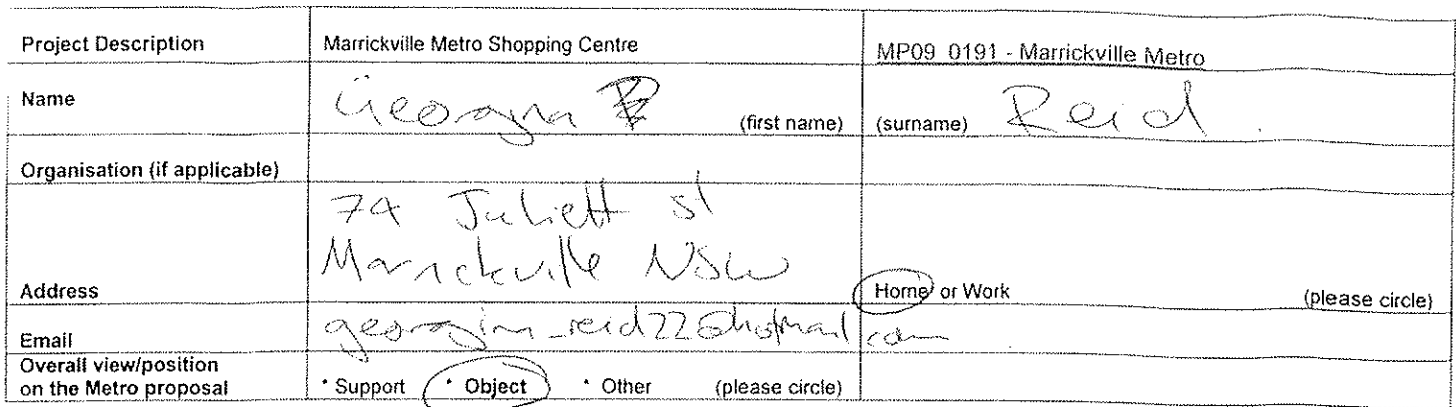 Project Description Marrickville Metro Shopping Centre MP09_0191 - Marrickville Metro
Name Georgina (first name) (surname) Reid
Organisation (if applicable)
74 Juliett St
Marrickville NSW
Address Home or Work (please circle)
Email
Overall view/position
on the Metro proposal * Support * Object * Other (please circle)